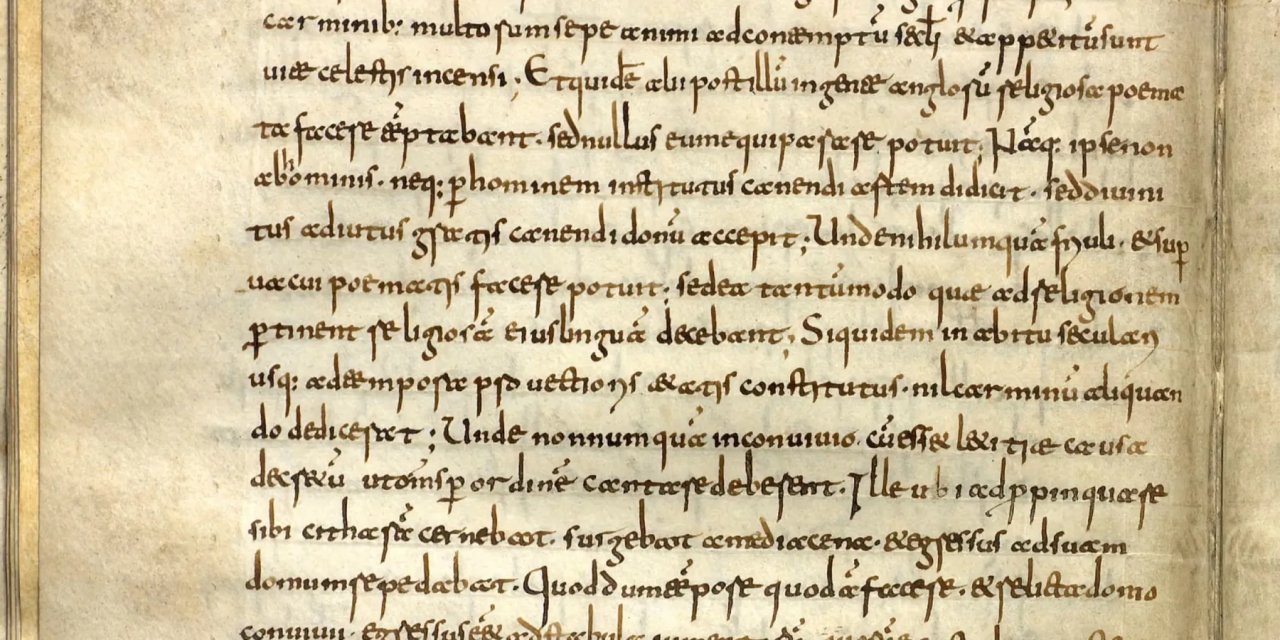 carminib: multorum sepe animi ad contemptū sectī & appetitū sunt
uitae celestis incensi; Et quidē alii post illū in gente anglorū religiosa poema
ta facere tēptabant. sed nullus eum equiparare potuit; Nāq: ipse non
ab hominib. neq: p hominem institutus canendi artem didicit. sed diuini
tus adiutus gratis canendi donū accepit; Unde nihil umquā friuoli. & sup
uacui poematis facere potuit; sed ea tantūmodo quae ad religionem
ptinent religiosā eius linguā decebant; Siquidem in abitu seculari
usq: ad tempora puectioris aetatis constitutus. nil carminū aliquan
do dedicerat; Unde nonnumquā in conuiuio. cū esset letitiae causa
decretū ut om̄s p ordinē cantare deberent. Ille ubi adppinquare
sibi citharā cernebat. surgebat a media cena. & egressus ad suam
domum repedabat. Quod dum tēpore quodā faceret. & relicta domo
conuiuii. egressus eēt ad stabula